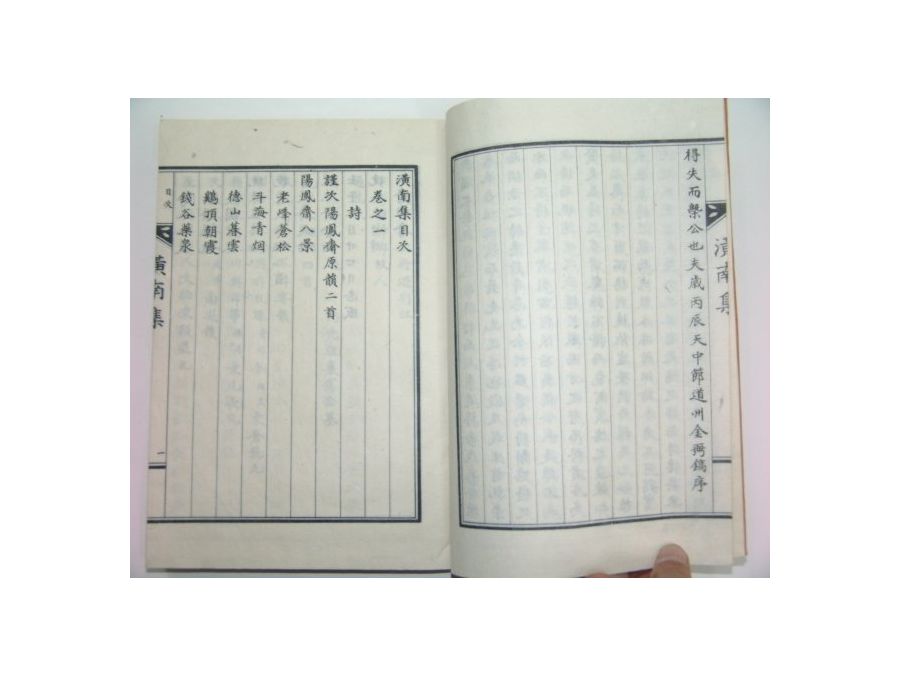 得失而槩公也夫歲丙辰天中節道州金再鎬序
潢南集
潢南集目次
卷之一
詩
謹次陽鳳齋原韻二首
陽鳳齋八景
老峰蒼松
斗海青烟
德山暮雲
鷄頂朝霞
筬谷藥泉
目次
潢南集
一